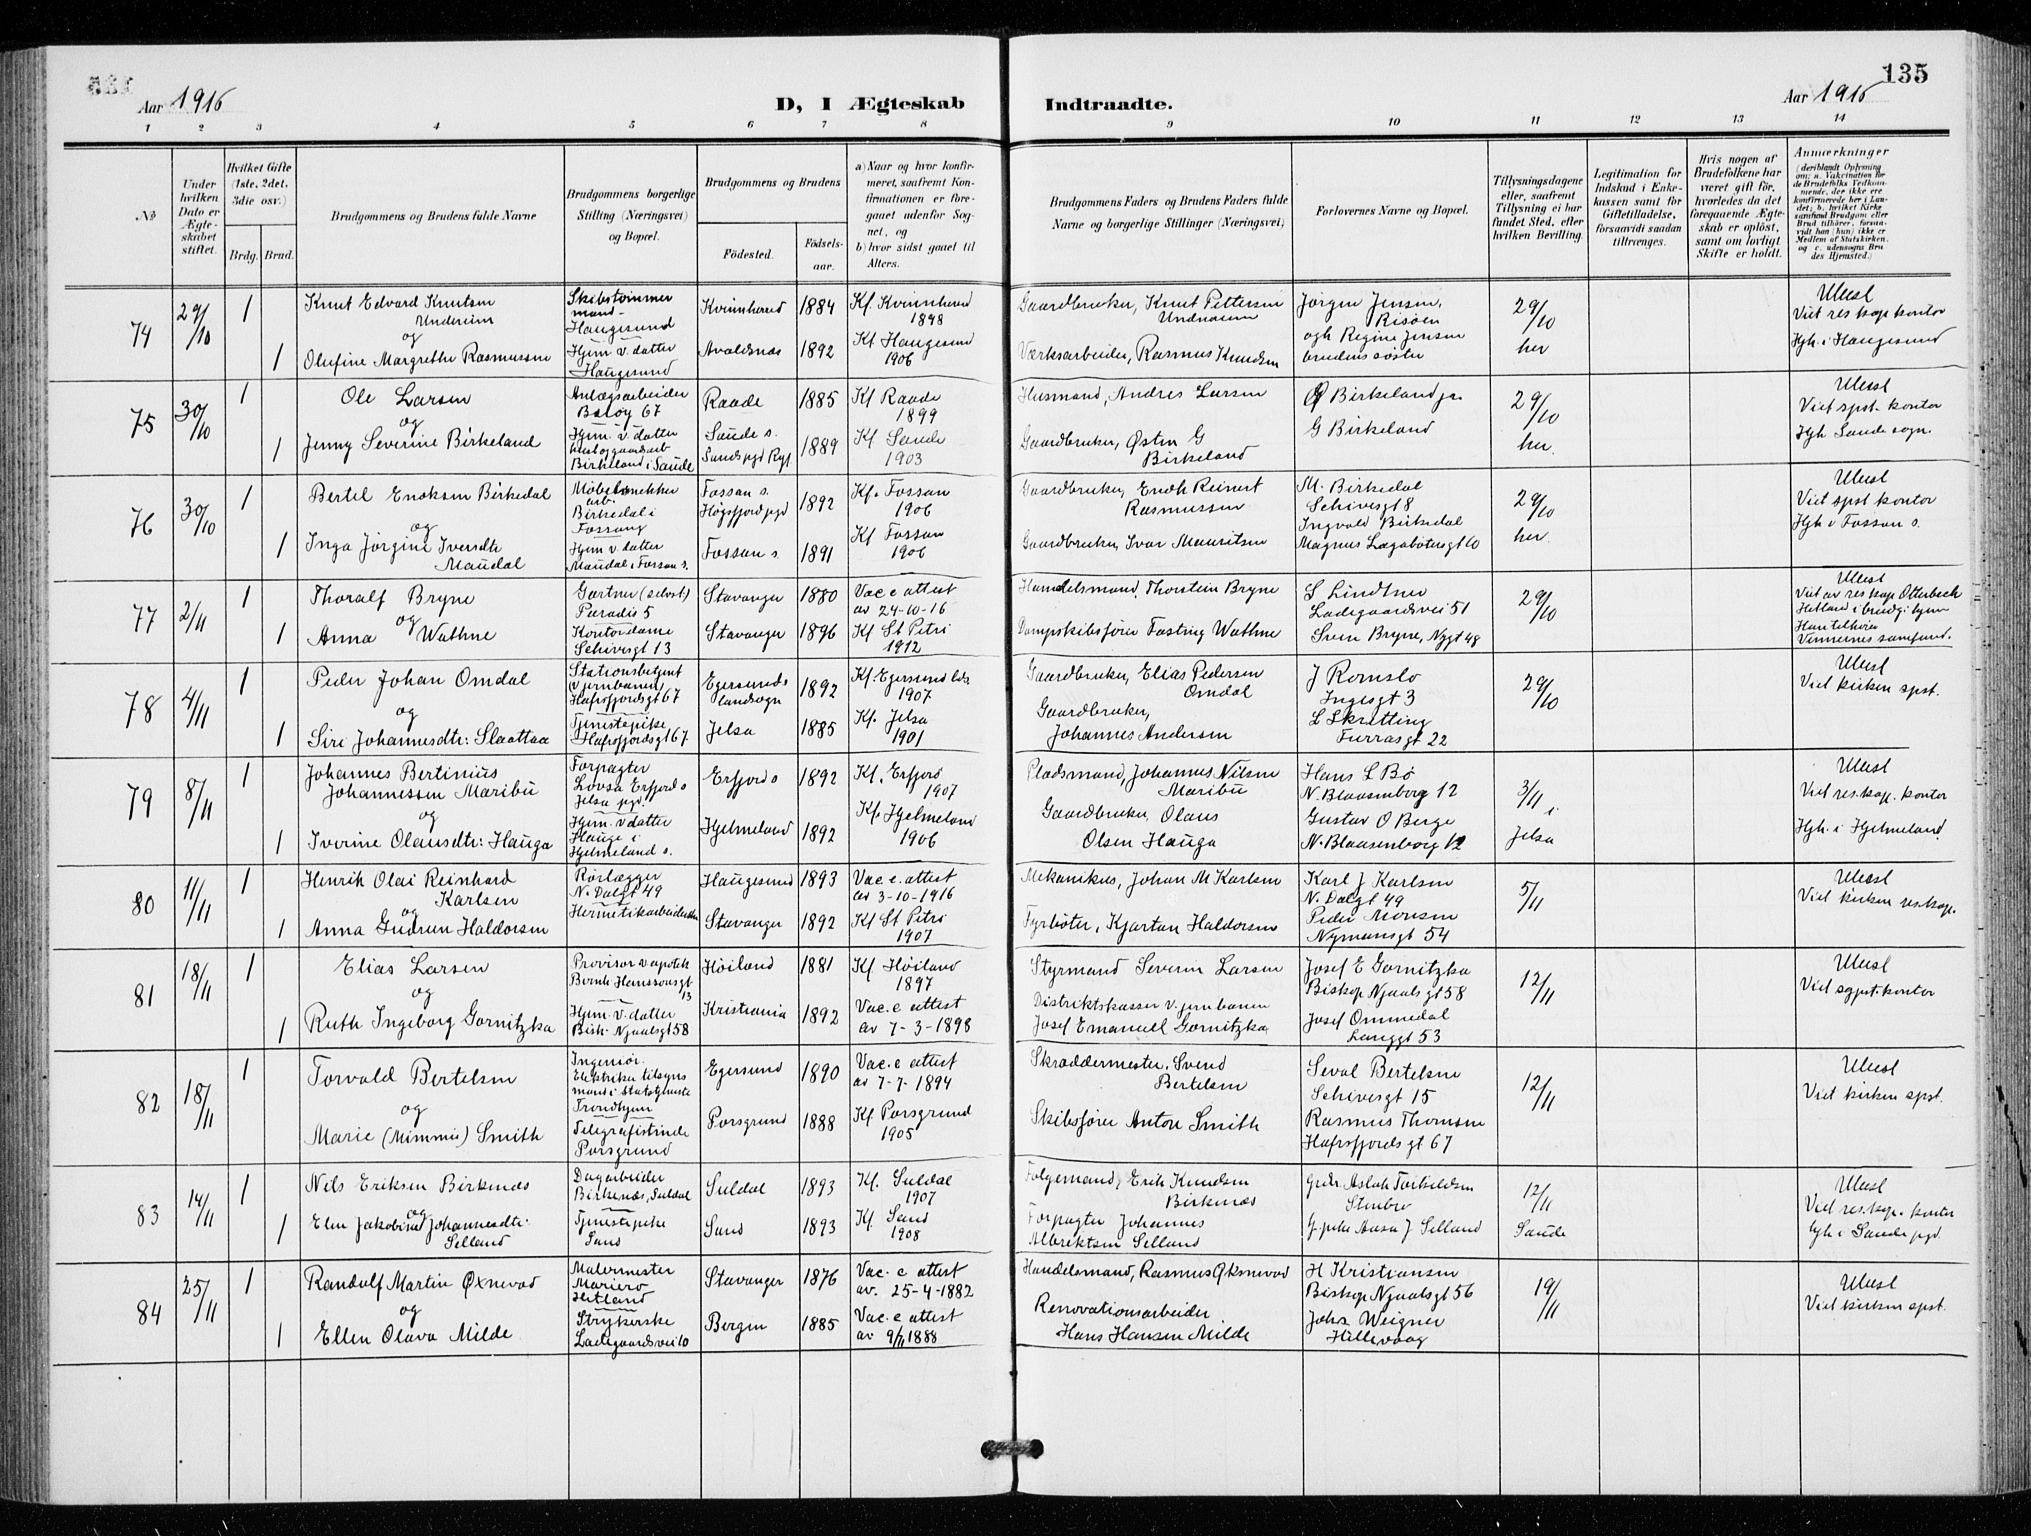 135
Aar 1916
D, I Ægteskab Indtraadte.
Aar 1916
1 2 3 4 5 6 7 8 9 10 11 12 13 14
No
Under hvilken Dato er Ægteskabet stiftet.
Hvilket Gifte (1ste, 2det, 3die osv.)
Brdg. Brud.
Brudgommens og Brudens fulde Navne
Brudgommens borgerlige Stilling (Næringsvei) og Bopæl.
Brudgommens og Brudens
Födested.
Födsels-aar.
a) Naar og hvor konfirmeret, saafremt Konfirmationen er foregaaet udenför Sognet, og
b) hvor sidst gaaet til Alters.
Brudgommens Faders og Brudens Faders fulde Navne og borgerlige Stillinger (Næringsvei).
Forlovernes Navne og Bopæl.
Tillysningsdagene eller, saafremt Tillysning ei har fundet Sted, efter hvilken Bevilling.
Legitimation for Indskud i Enkekassen samt for Giftetilladelse, forsaavidt saadan tiltrænges.
Hvis nogen af Brudefolkene har været gift för, hvorledes da det foregaaende Ægteskab er oplöst, samt om lovligt Skifte er holdt.
Anmærkninger
74 29/10 1
Knut Edvard Knutsen Undheim
og
1 Olufine Margrethe Rasmussen
Skibstömmermand- Haugesund
Hjem. v. datter Haugesund
Kvinnherad 1884 Kf. Kvinnherad 1898
Avaldsnes 1892 Kf Haugesund 1906
Gaardbruker, Knut Pettersen
Værksarbeider, Rasmus Knudsen
Jörgen Jensen, Risöen
ogh Regine Jensen brudens söster
29/10 her
Viet res kap kontor
Hjh. i Haugesund
75 30/10 1
Ole Larsen
og
1 Jenny Severine Birkeland
Anlægsarbeider
Hjem. v. datter
Birkeland i Saude
Raade 1885 Kf Raade 1899
Saude s. 1889 Kf Saude 1903
Husmand, Andres Larsen
Gaardbruker, Østen G Birkeland
Ø Birkeland
G Birkeland
29/10 her.
Viet spst. kontor
Hjh. Saude sogn.
76 30/10 1
Bertel Enoksen Birkedal
og
1 Inga Jörgine Iversdtr Maudal
Møbelsnekker arb. Birkedal i Fossang
Hjem v. datter Maudal i Fossan s.
Fossan s. Høgsfjord pgd 1892 Kf. Fossan 1906
Fossan s. 1891 Kf Fossan 1906
Gaardbruker, Enok Reinert Rasmussen
Gaardbruker, Ivar Mauritsen
M. Birkedal
Schivesgt 8
Ingvald Birkedal
Magnus Lagabötersgt 10
29/10 her.
Viet spst kontor
Hjh i Fossan s.
77 2/11 1
Thoralf Bryne
og
1 Anna Wathne
Gartner (selvst) Paradis 5
Kontordame Schivesgt 13
Stavanger 1880 Vac. c attest av 24-10-16
Stavanger 1896 Kf St Petri 1912
Handelsmand, Thorstein Bryne
Dampskibsförer Fasting Wathne
S Lindtner
Ladegaardsvei 51
Sven Bryne, Nygt 48
29/10
Viet av res kap Otterbech
Hetland i brudg: hjem
Han tilhörer Vennernes samfund.
78 4/11 1
Peder Johan Omdal
og
1 Siri Johannesdtr: Slaattaa
Stationsbetjent (v jernbanen) Hafrsfjordsgt 67
Tjenestepike Hafrsfjordsgt 67
Egersunds landsogn 1892 Kf. Egersund lds 1907
Jelsa 1885 Kf. Jelsa 1901
Gaardbruker, Elias Pedersen Omdal
Gaardbruker, Johannes Andersen
J Romslo
Ingesgt 3
L Skretting
Furrasgt 22
29/10
Viet kirken spst.
79 8/11 1
Johannes Bertinius Johannessen Maribu
og
1 Iverine Olausdtr: Hauga
Forpagter Lovsa Erfjord s Jelsa pgd.
Hjem. v datter Hauge i Hjelmeland s.
Erfjord s 1892 Kf. Erfjord 1907
Hjelmeland 1892 Kf. Hjelmeland 1906
Pladsmand, Johannes Nilsen Maribu
Gaardbruker, Olaus Olsen Hauga
Hans L Bö
N. Blaasenborg 12
Gustav O Berge
N. Blaasenborg 12
3/11 i Jelsa
Viet res. kap. kontor
Hjh. i Hjelmeland.
80 11/11 1
Henrik Olai Reinhard Karlsen
og
1 Anna Gudrun Haldorsen
Rørlægger N. Dalgt 49
Hermetikarbeiderske
Haugesund 1893 Vac. c. attest av 3-10-1916
Stavanger 1892 Kf St Petri 1907
Mekanikus, Johan M Karlsen
Fyrböter, Kjartan Haldorsen
Karl J Karlsen
N. Dalgt 49
Peder Monsen
Nymansgt 54
5/11
Viet kirken res. kap.
81 18/11 1
Elias Larsen
og
1 Ruth Ingeborg Gornitzka
Provisor v apotek Bernt Hanssonsgt 13
Hjem. v. datter Bisk. Njaalsgt 58
Höiland 1881 Kf Höiland 1897
Kristiania 1892 Vac. c attest av 7-3-1898
Styrmand Severin Larsen
Distriktskasser v. jernbanen Josef Emanuel Gornitzka
Josef E Gornitzka
Biskop Njaalsgt 58
Josef Ommedal
Langgt 53
12/11
Viet spst. kontor
82 18/11 1
Torvald Bertelsen
og
Marie (Mimmi) Smith
Ingeniör.
Trondhjem
Telegrafistinde Porsgrund
Egersund 1890 Vac. c attest av 7-7-1894
Porsgrund 1888 Kf Porsgrund 1905
Skræddermester, Svend Bertelsen
Skibsförer Anton Smith
Seval Bertelsen
Schivesgt 15
Rasmus Thomsen
Hafrsfjordsgt 67
12/11
Viet kirken spst.
83 14/11 1
Nils Eriksen Birkenæs
og
1 Elen Jakobine Johannesdtr: Selland
Dagarbeider Birkenæs, Suldal
Tjenestepike Sand
Suldal 1893 Kf. Suldal 1907
Sand 1893 Kf. Sand 1908
Folgemand, Erik Knudsen Birkenæs
Forpagter Johannes Albrektsen Selland
Grdbr. Aslak Torkildsen
12/11 Saude
Viet res. kap. kontor
hjh i Saude pgd.
84 25/11 1
Randolf Martin Øxnevad
og
1 Ellen Olava Milde
Malermester Mariero Hetland
Strykerske Ladegaardsvei 10
Stavanger 1876 Vac. c attest av. 25-4-1882
Bergen 1885 Vac. c attest av 9/11 1888
Handelsmand, Rasmus Øksnevad
Renovationsarbeider Hans Hansen Milde
H Kristiansen
Biskop Njaalsgt 56
Johs Weigner
Hillevaag
19/11
Viet kirken spst.